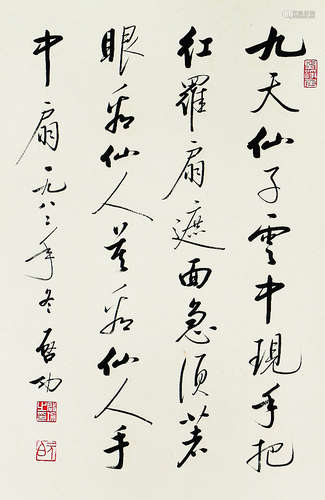 九天仙子雲中現手把
紅羅扇遮面急須著
眼看仙人莫看仙人手
中扇一九八二年冬啟功